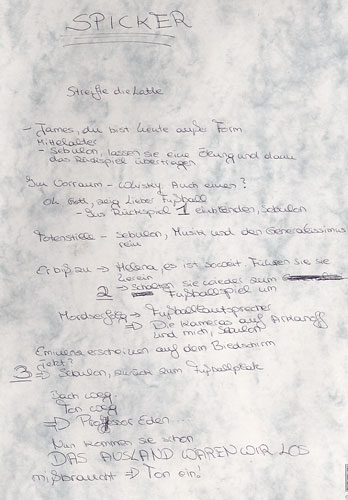 SPICKER
Streifte die Latte
- James, du bist heute außer Form
Mittelalter
- Sebulon, lassen sie eine Übung und dann
das Rückspiel übertragen
Im Vorraum - Whisky. Auch einen?
Oh Gott, zeig lieber Fußball
- Ins Rückspiel 1 einblenden, Sebulon
Totenstille - Sebulon, Musik und den Generalissimus
rein
Er biß zu → Helena, es ist soweit Führen Sie sie
herein
2 → Schalten sie wieder zum
Fußballspiel um
Morderfolg → Fußballlautsprecher
⇒ Die Kameras auf
und mich, Sebulon
Eminenz erscheinen auf dem Bildschirm
jetzt?
3 ⇒ Sebulon, zurück zum Fußballplatz
Dach weg
Ton weg
⇒ Professor Eden...
Nun kommen sie schon
DAS AUSLAND WAREN WIR LOS
mißbraucht → Ton ein!